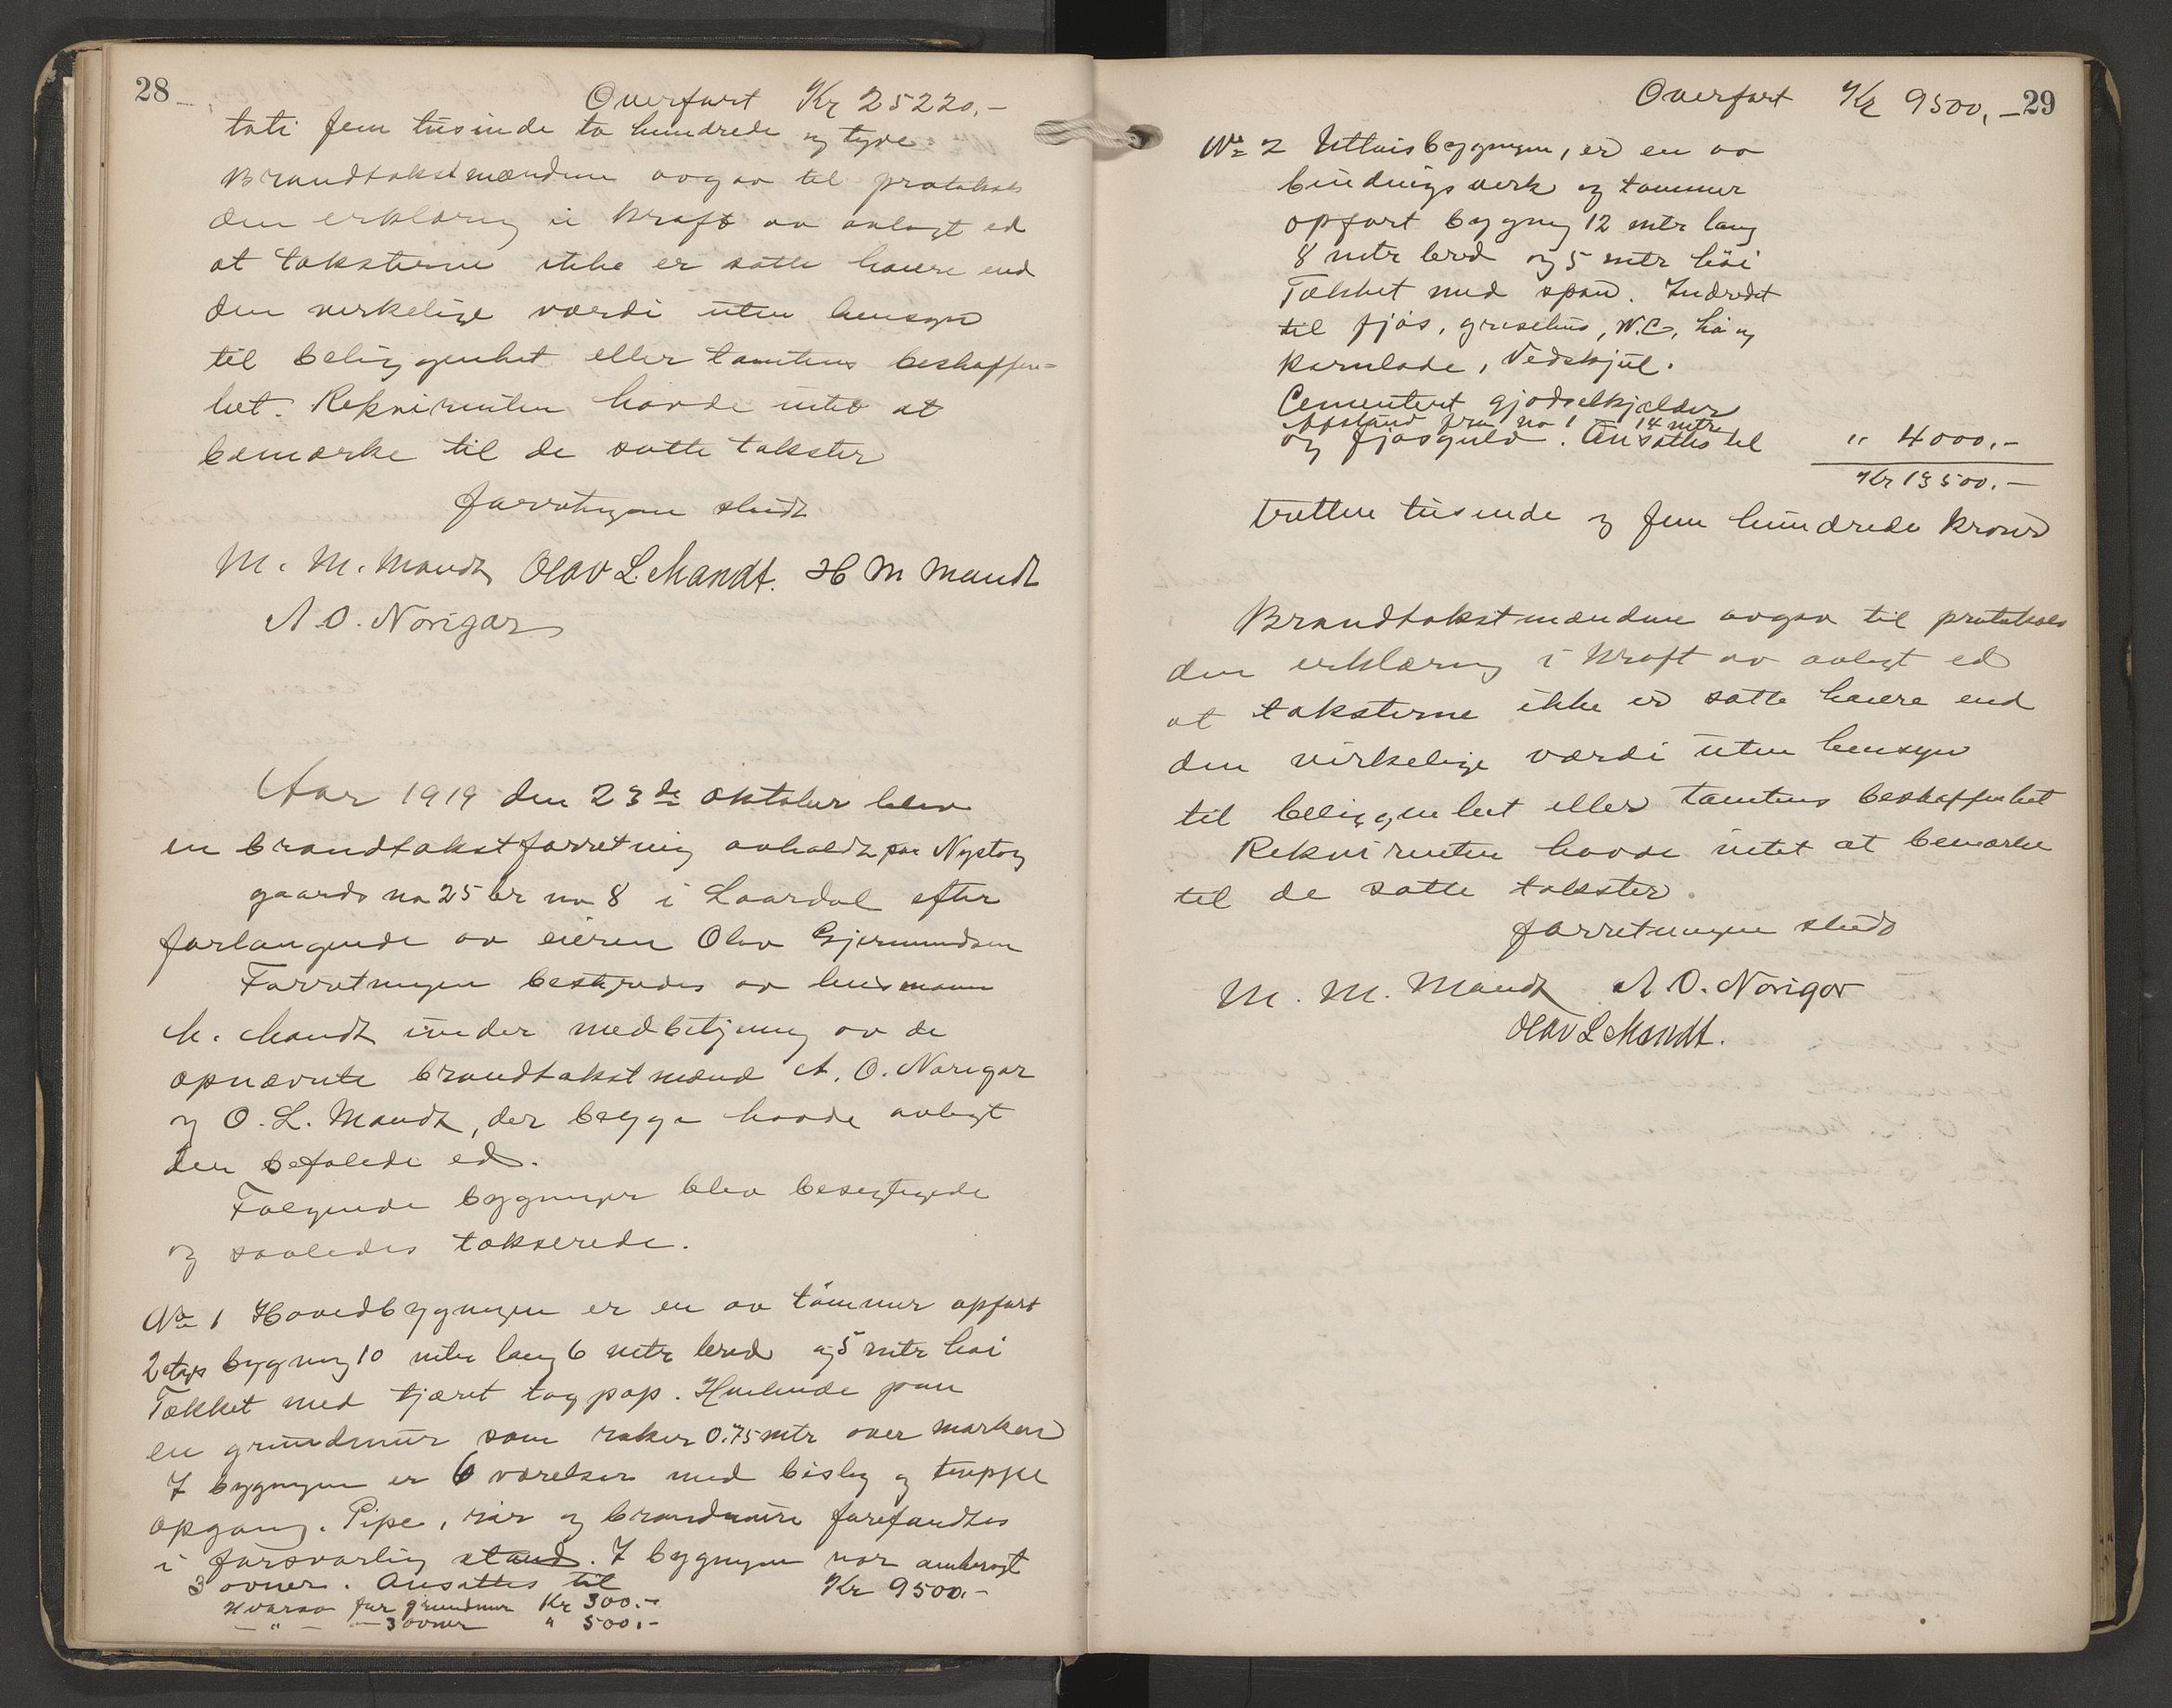 28
Overført Kr 25220,-
toti fem tusinde to hundrede og tyve
Brandtakstmændene avgav til protokols
den erklæring i kraft av avlagt ed
at taksterne ikke er satte høiere end
den virkelige værdi uten hensyn
til beliggenhet eller tomtens beskaffen-
het. Rekvirenten havde intet at
bemærke til de satte takster
Forretningen sludt
M. M. Mandt Olav L. Mandt. H M Mandt
A. O. Norigar
Aar 1919 den 23de oktober blev
en brandtakstforretning avholdt paa Nystog
gaards no 25 br no 8 i Laardal efter
forlangende av eieren Olav Gjermundsen
Forretningen bestyredes av lensmann
M. Mandt under medbetjening av de
opnævnte brandtakstmænd A. O. Norigar
og O. L. Mandt, der begge havde avlagt
den befalede ed.
Følgende bygninger blev besigtigede
og saaledes takserede.
No 1 Hovedbygningen er en av tømmer opført
2 etags bygning 10 mtr lang 6 mtr bred og 5 mtr høi
Tækket med tjæret tagpap. Hvilende paa
en grundmur som raker 0.75 mtr over marken
I bygningen er 6 værelser med bislag og trappe
opgang. Pipe, rør og brandmure forefandtes
i forsvarlig stand. I bygningen var anbragt
3 ovner. Ansættes til Kr 9500.-
Hvorav for grundmur Kr 300.-
- " - - 3 ovner " 500.-
Overført Kr 9500,- 29
No 2 Uthusbygningen, er en av
bindingsverk og tømmer
opført bygning 12 mtr lang
8 mtr bred og 5 mtr høi
Tækket med spon. Indredet
til fjøs, grisehus, W.C, hø og
kornlade, Vedskjul.
Cementert gjødselkjælder
Avstand fra no 1 14 mtr
og fjøsgulv. Ansættes til " 4000.-
Kr 13500.-
tretten tusinde og fem hundrede kroner
Brandtakstmændene avgav til protokols
den erklæring i kraft av avlagt ed
at taksterne ikke er satte høiere end
den virkelige værdi uten hensyn
til beliggenhet eller tomtens beskaffenhet
Rekvirenten havde intet at bemærke
til de satte takster.
Forretningen sludt
M. M. Mandt A O. Norigar
Olav L Mandt.